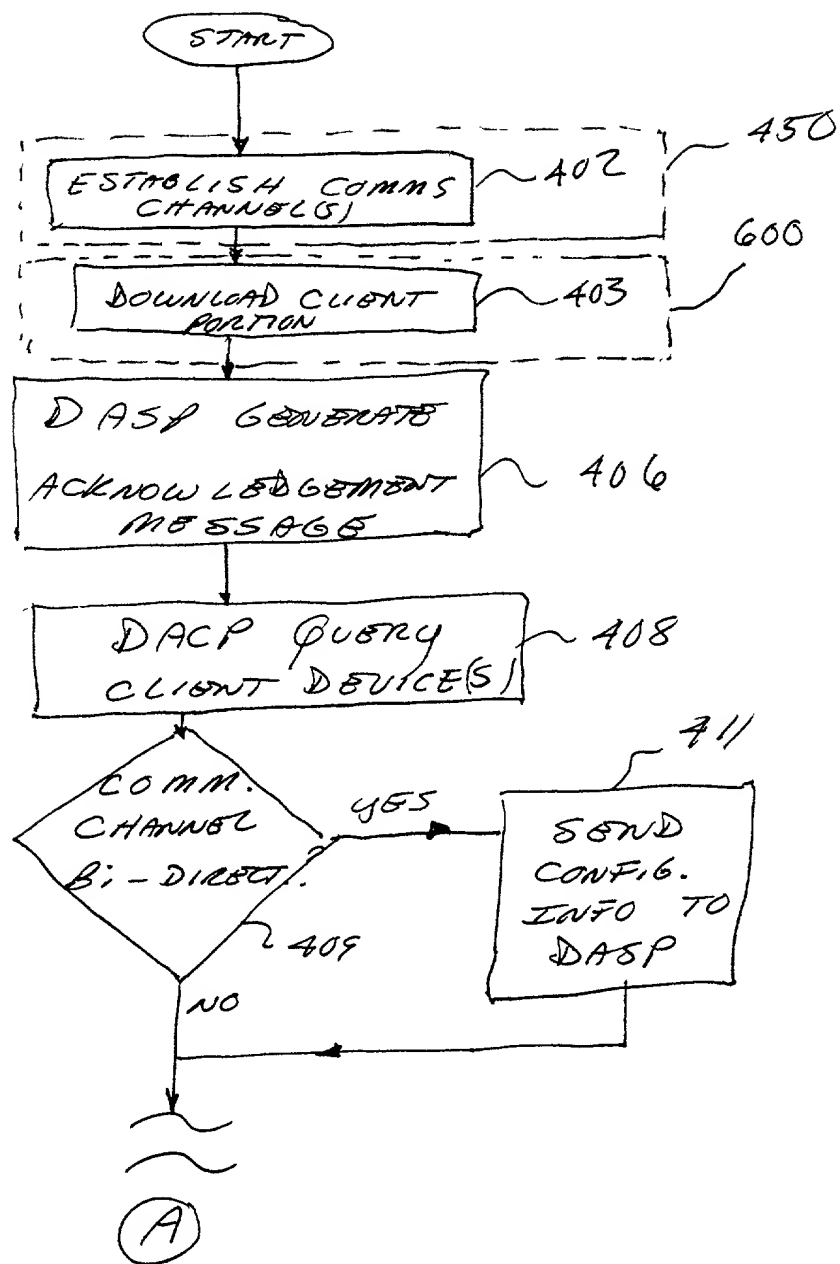 START
450
ESTABLISH COMMS
CHANNEL(S)
402
600
DOWNLOAD CLIENT
PORTION
403
DASP GENERATE
ACKNOWLEDGEMENT
MESSAGE
406
DACP QUERY
CLIENT DEVICE(S)
408
COMM.
CHANNEL
Bi-DIRECT.
409
YES
NO
411
SEND
CONFIG.
INFO TO
DASP
A